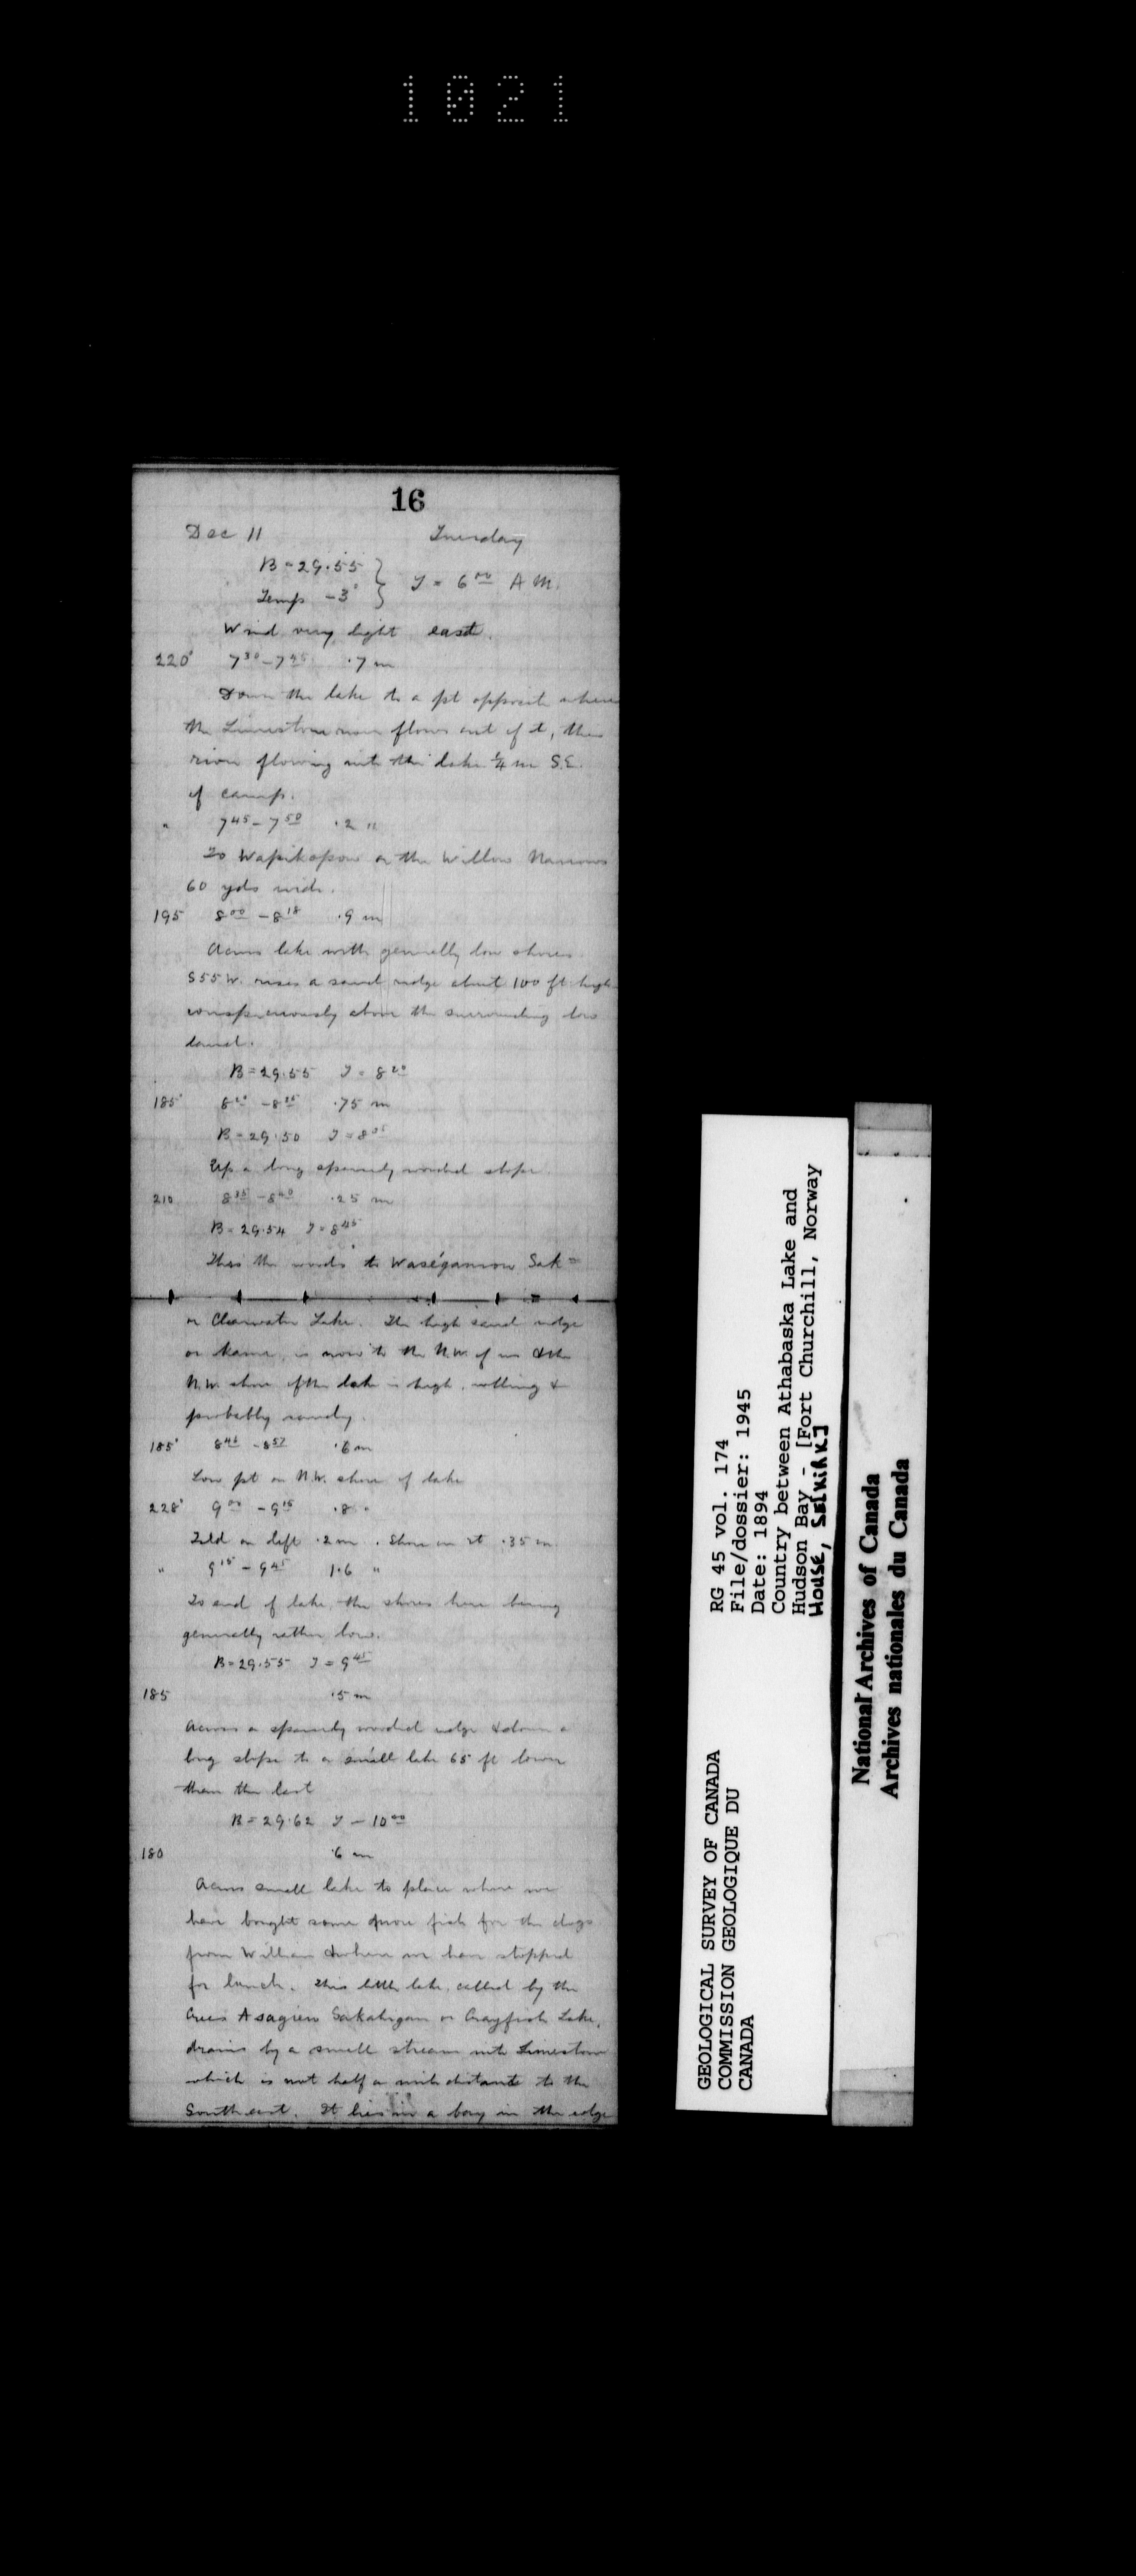 1021
16
Dec 11 Tuesday
B = 29.55 } T = 6 00 A.M.
Temp -3°
Wind very light east.
220° 7 30 - 7 45 .7 m
Down the lake to a pt opposite where
the Limestone river flows out of it, the
river flowing into the lake 1/4 m S.E.
of camp.
" 7 45 - 7 50 .2 "
To Wapikopow or the Willow Narrows
60 yds wide.
195 8 00 - 8 18 .9 m
Across lake with generally low shores.
S55W. rises a sand ridge about 100 ft high
conspicuously above the surrounding low
land.
B = 29.55 T = 8 20
185° 8 20 - 8 35 .75 m
B = 29.50 T = 8 35
Up a long sparsely wooded slope.
210 8 35 - 8 40 .25 m
B = 29.54 T = 8 45
Thro the woods to Waségamow Sak =
or Clearwater Lake. The high sand ridge
or kame, is now to the N.W. of us & the
N.W. shore of the lake is high, rolling &
probably sandy.
185° 8 46 - 8 57 .6 m
Low pt on N.W. shore of lake
228° 9 00 - 9 15 .8 "
Isld on left .2 m. Shore on rt .35 m.
" 9 15 - 9 45 1.6 "
To end of lake, the shores here being
generally rather low.
B = 29.55 T = 9 45
185 .5 m
Across a sparsely wooded ridge & down a
long slope to a small lake 65 ft lower
than the last
B = 29.62 T - 10 00
180 .6 m
Across small lake to place where we
have bought some more fish for the dogs
from William & where we have stopped
for lunch. This little lake, called by the
Crees Asagiew Sakahigan or Crayfish Lake,
drains by a small stream into Limestone
which is not half a mile distant to the
South east. It lies in a bay in the edge
GEOLOGICAL SURVEY OF CANADA
COMMISSION GEOLOGIQUE DU
CANADA
RG 45 vol. 174
File/dossier: 1945
Date: 1894
Country between Athabaska Lake and
Hudson Bay - [Fort Churchill, Norway
House, SELKIRK]
National Archives of Canada
Archives nationales du Canada